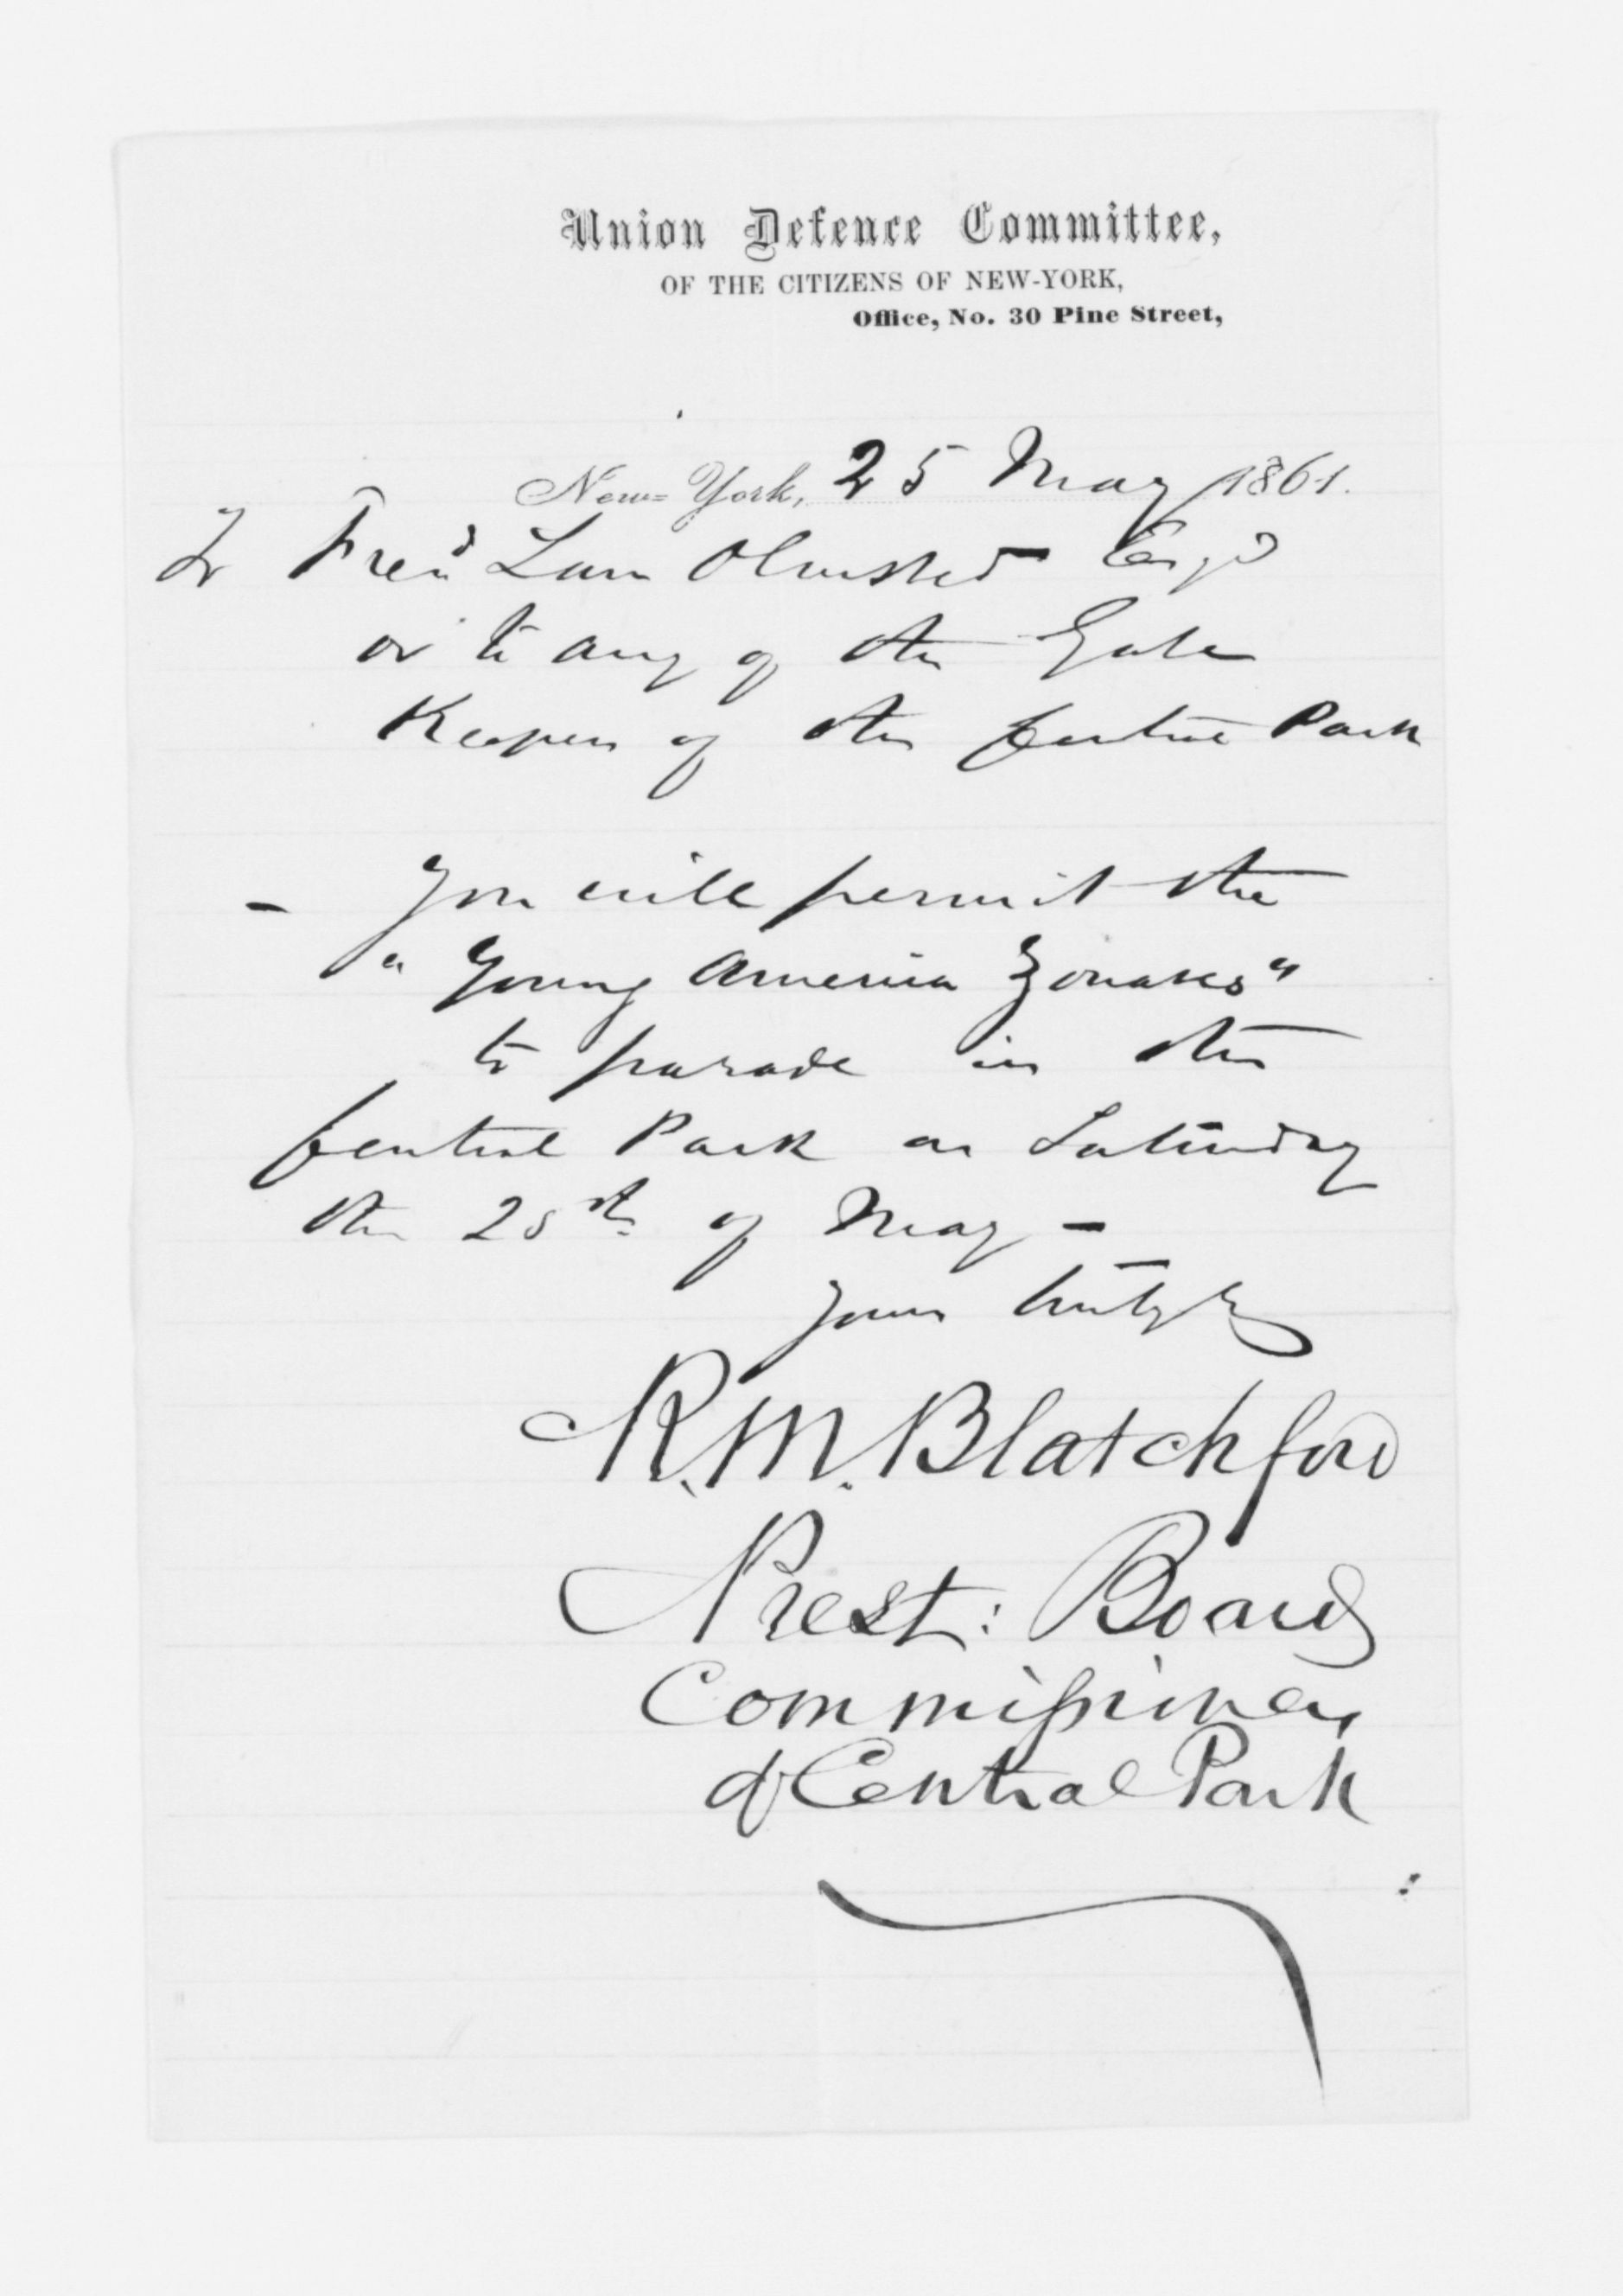 Union Defence Committee,
OF THE CITIZENS OF NEW-YORK,
Office, No. 30 Pine Street,
New-York, 25 May 1861.
To Fred Law Olmsted Esqr
or to any of the Gate
Keepers of the Central Park
- You will permit the
"Young America Zouaves"
to parade in the
Central Park on Saturday
the 25th of May -
Yours truly
R. M. Blatchford
Prest: Board
Commissioners
of Central Park